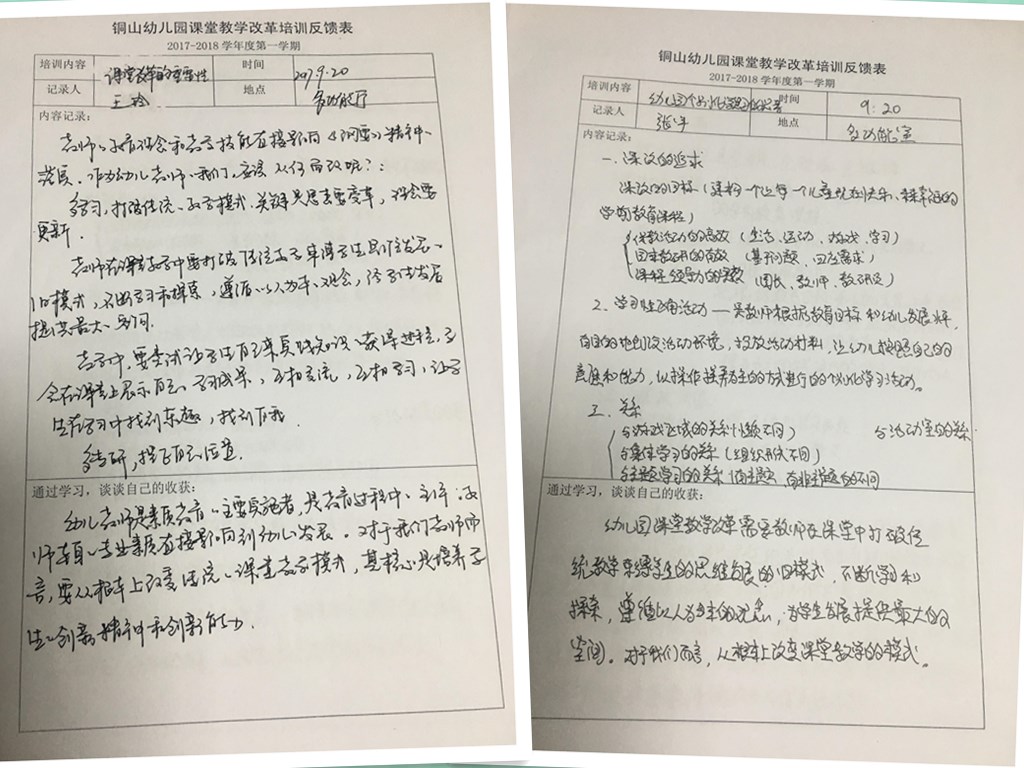 铜山幼儿园课堂教学改革培训反馈表
2017-2018 学年度第一学期
培训内容 课堂改革的重要性 时间 2017.9.20
记录人 王玲 地点 多功能厅
内容记录:
老师的教育观念和教学技能直接影响
发展。作为幼儿老师的我们,应该从何而改呢?
多学习,打破传统的教学模式,关键是思想要变革,观念要
更新。
老师在课堂教学中要打破传统教学束缚学生思维发展的
旧模式,不断学习和探索,遵循以人为本的观念,给学生发展
提供最大的空间。
教学中,要尝试让学生自己来
会在课堂上展示自己的学习成果,互相交流,互相学习,让学
生在学习中找到乐趣,找到自我。
多专研,提升自己
通过学习,谈谈自己的收获:
幼儿老师是素质教育的主要实施者,是教育过程中的主导,教
师本身的专业素质直接影响到幼儿的发展。对于我们教师而
言,要从根本上改变传统的课堂教学模式,其核心是培养学
生的创新精神和创新能力。
铜山幼儿园课堂教学改革培训反馈表
2017-2018 学年度第一学期
培训内容 幼儿园个别化 时间 9:20
记录人 地点 多功能室
内容记录:
一、课改的追求
课改的目标(建构一个让每一个儿童现在快乐、未来幸福的
学前教育课程)
活动的高效(生活、运动、游戏、学习)
园本教研的高效(基于问题、回应需求)
课程领导力的高效(园长、教师、教研员)
2、学习性区角活动——是教师根据教育目标和幼儿发展水平,
有目的地创设活动环境,投放活动材料,让幼儿按照自己的
意愿和能力,以操作摆弄为主的方式进行的个别化学习活动。
三、关系
与游戏区域的关系(性质不同) 与活动室的关系
与集体学习的关系(组织形式不同)
与主题学习的关系(有主题、有非主题的不同
通过学习,谈谈自己的收获:
幼儿园课堂教学改革需要教师在课堂中打破传
统教学束缚学生的思维发展的旧模式,不断学习和
探索,遵循以人为本的观念,为学生发展提供最大的
空间。对于我们而言,从根本上改变课堂教学的模式。